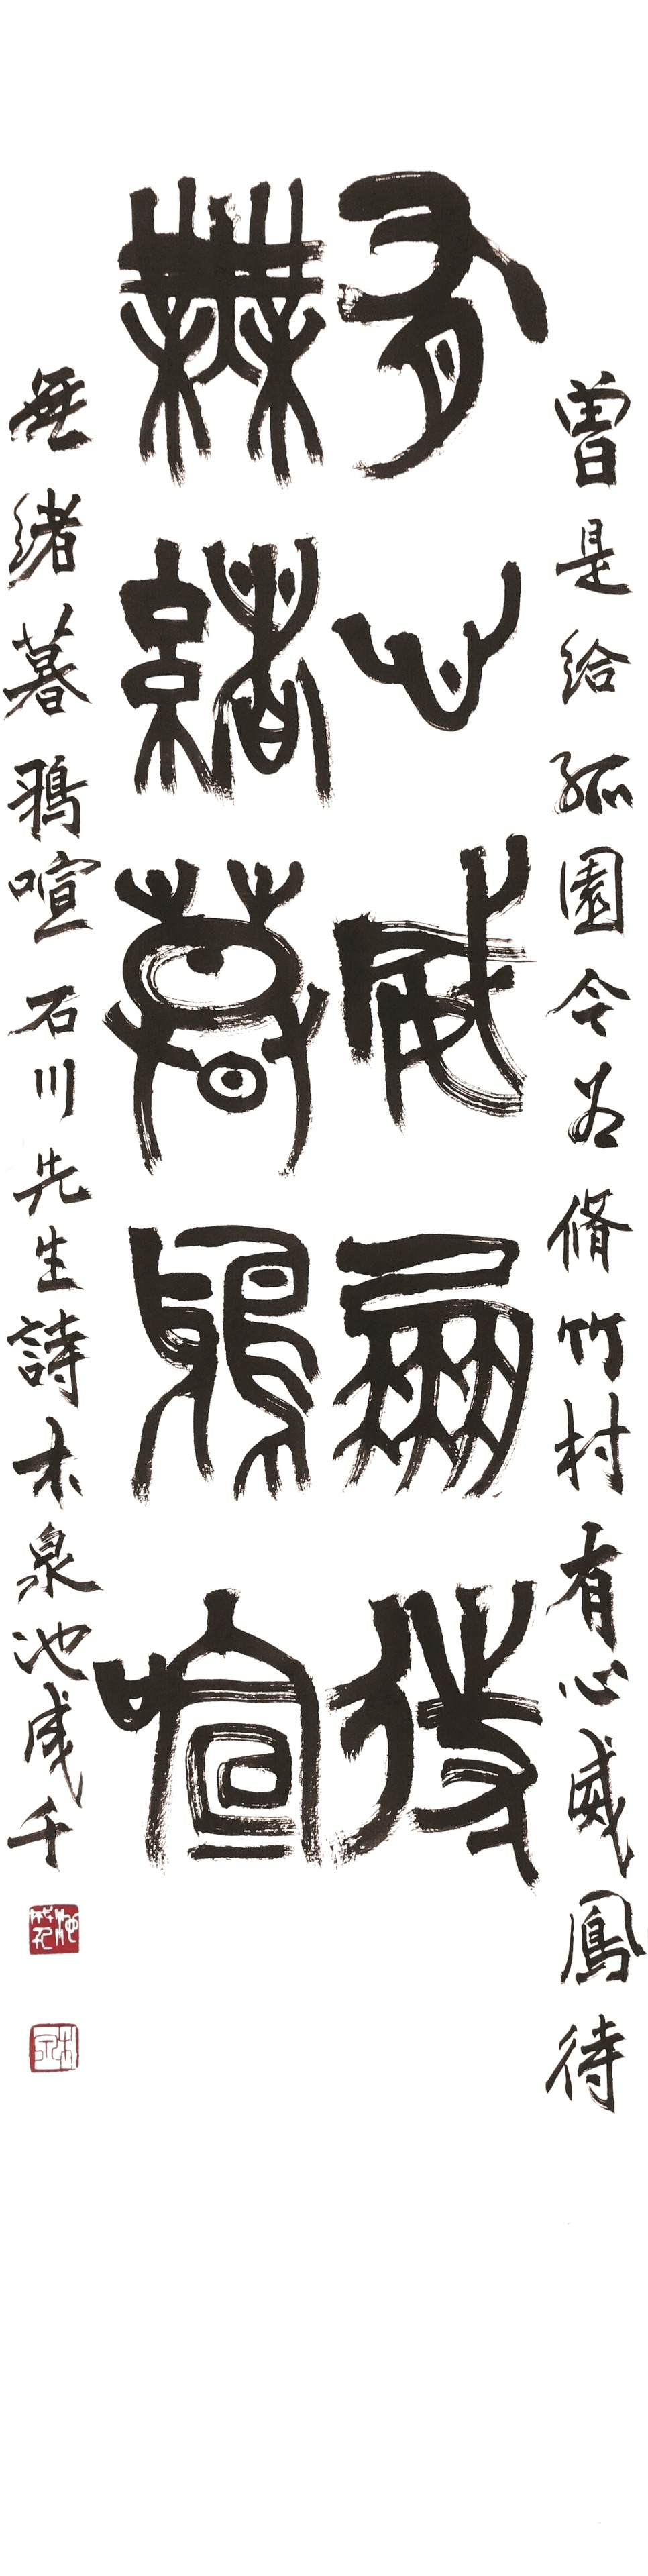 曾是給孤園今为脩竹村有心威鳳待
有心威鳳待
無緒暮鴉喧
無緒暮鴉喧石川先生詩木泉池成千